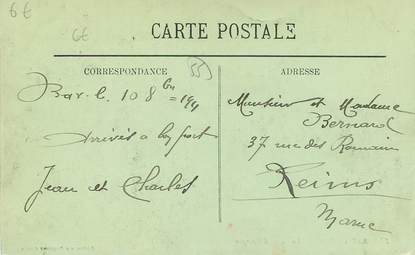 6€
6€
CARTE POSTALE
CORRESPONDANCE
Bar. L. 10 8
arrivés a
Jean et Charles
ADRESSE
Monsieur et Madame
Bernard
37 rue des Romains
Reims
Marne